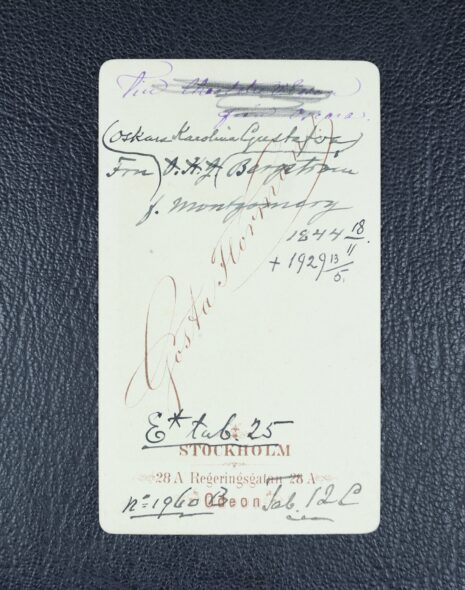 Till
från mamma.
(Oskara Karolina Gustafva)
Fru) O. A. J. (Bergström
f. Montgomery
1844 18/11.
+ 1929 13/5.
Gösta Florman
E* tab. 25
STOCKHOLM
28 A Regeringsgatan 28 A
Odeon
no 1960 B Tab. 12 C